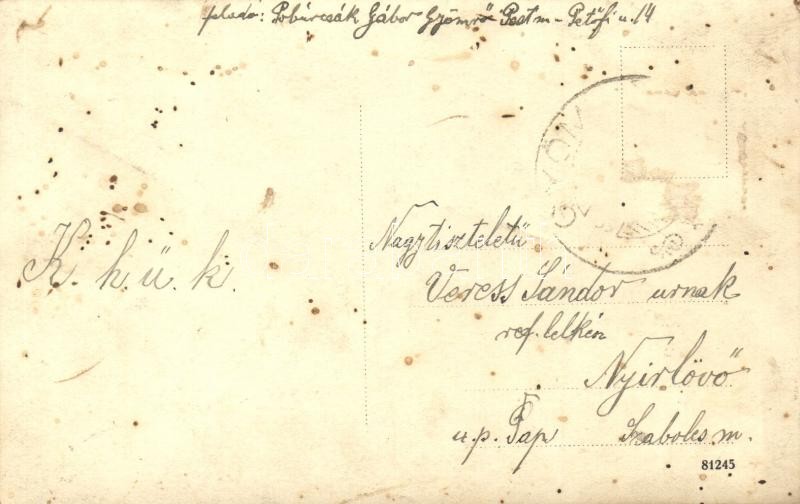 feladó: Pobúrcsák Gábor Gyömrő Pest m - Petőfi u. 14
K. h. ü. k.
Nagytiszteletű
Veress Sándor urnak
ref. lelkész
Nyirlövő
u. p. Pap Szabolcs m.
81245